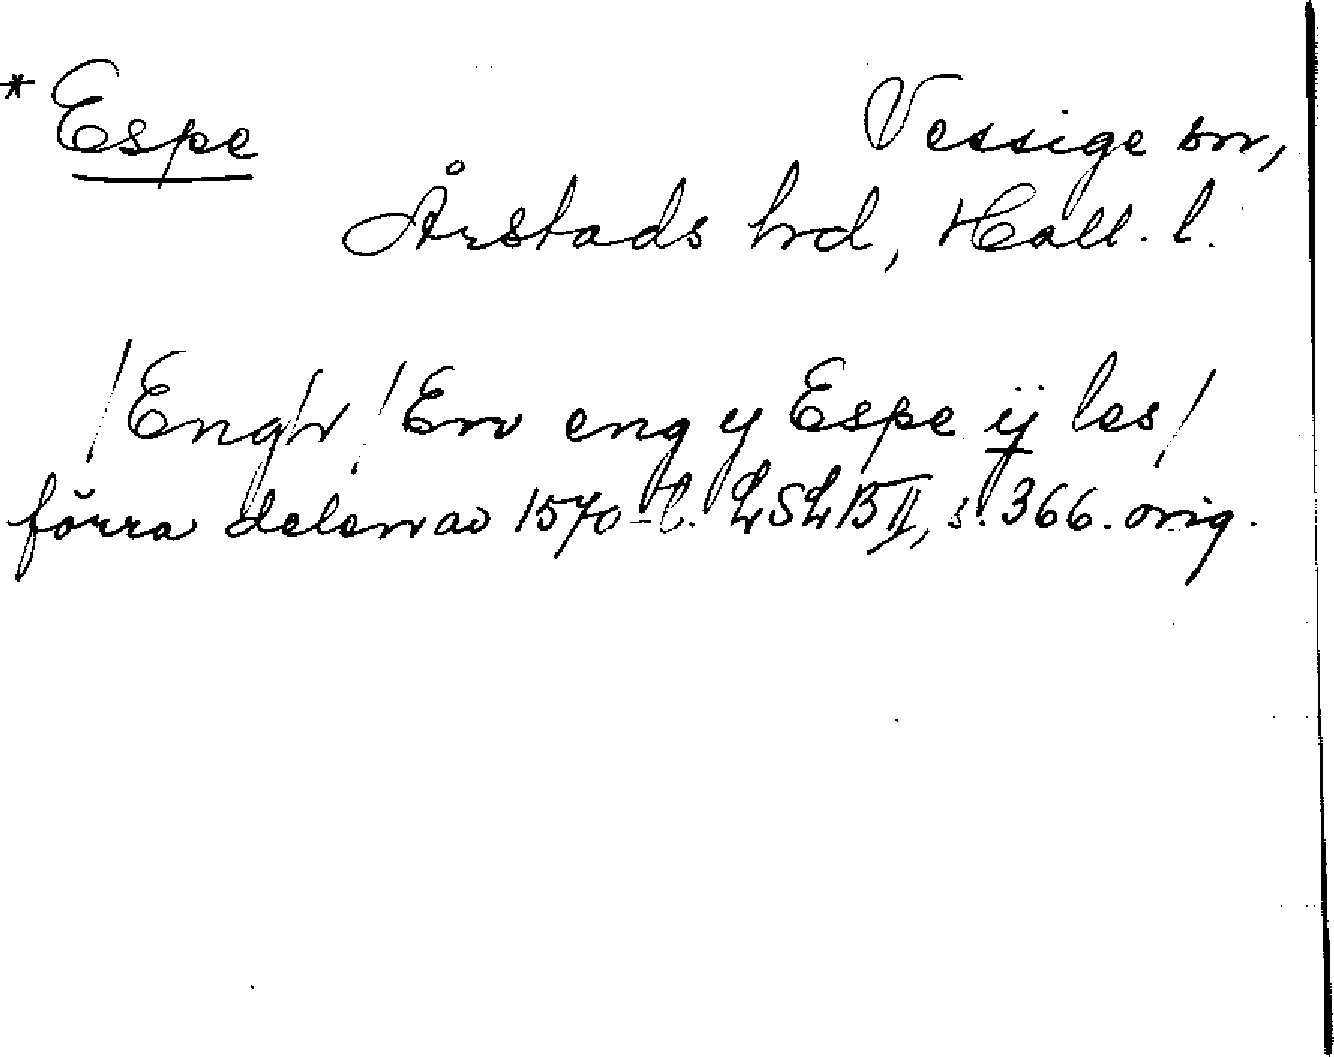 *Espe Vessige sn,
Årstads hrd, Hall. l.
/Engh/ En eng y Espe ij les/
förra delen av 1570-t. LSLB II, s. 366. orig.